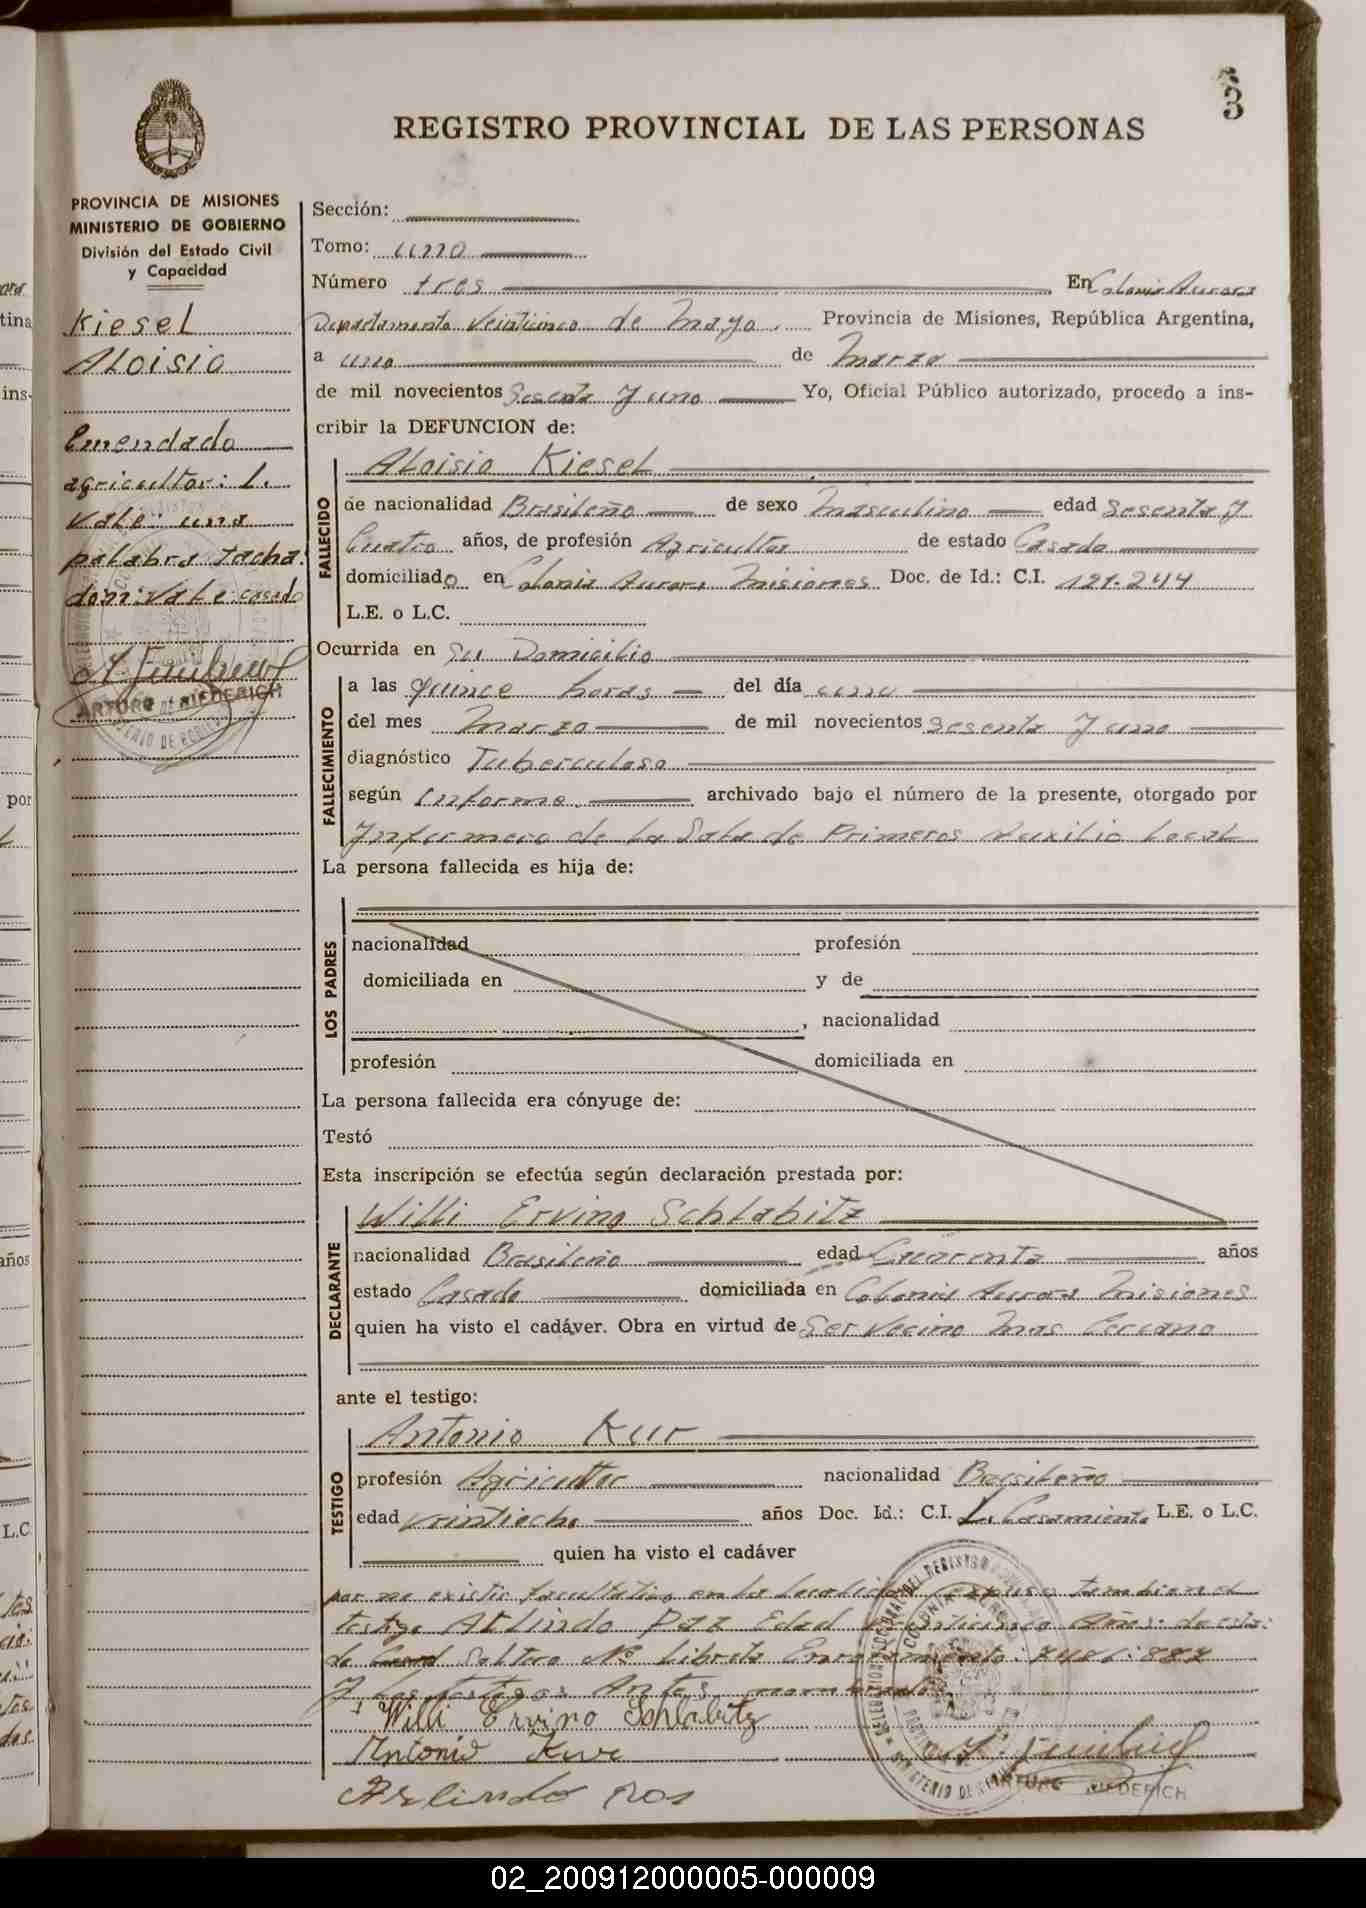 3
REGISTRO PROVINCIAL DE LAS PERSONAS
PROVINCIA DE MISIONES
MINISTERIO DE GOBIERNO
División del Estado Civil
y Capacidad
Kiesel
Aloisio
Emendado
agricultor: L.
vale una
palabra tacha:
dom: vale casado
ARTURO NIEDERICH
Sección:
Tomo: uno
Número tres En Colonia Aurora
Departamento Veinticinco de Mayo. Provincia de Misiones, República Argentina,
a uno de Marzo
de mil novecientos Sesenta y uno Yo, Oficial Público autorizado, procedo a ins-
cribir la DEFUNCION de:
FALLECIDO
Aloisio Kiesel
de nacionalidad Brasileño de sexo Masculino edad Sesenta y
Cuatro años, de profesión Agricultor de estado Casado
domiciliado en Colonia Aurora Misiones Doc. de Id.: C.I. 121.244
L.E. o L.C.
Ocurrida en Su Domicilio
FALLECIMIENTO
a las quince horas del día uno
del mes Marzo de mil novecientos Sesenta y uno
diagnóstico Tuberculosa
según Informe archivado bajo el número de la presente, otorgado por
Infermero de La Sala de Primeros Auxilio Local
La persona fallecida es hija de:
LOS PADRES
nacionalidad profesión
domiciliada en y de
, nacionalidad
profesión domiciliada en
La persona fallecida era cónyuge de:
Testó
Esta inscripción se efectúa según declaración prestada por:
DECLARANTE
Willi Ervino Schlabitz
nacionalidad Brasileño edad Cuarenta años
estado Casado domiciliada en Colonia Aurora Misiones
quien ha visto el cadáver. Obra en virtud de Ser Vecino Mas Cercano
ante el testigo:
TESTIGO
Antonio Kur
profesión Agricultor nacionalidad Brasileño
edad veintiocho años Doc. Id.: C.I. L. Casamiento L.E. o L.C.
quien ha visto el cadáver
por no existir facultativo en la Localidad expuso tambien el
testigo Arlindo Edad Veinticinco Años: de esta:
do Soltero Nº Libreta Enrolamiento. 7.486.882
y los testigos Antes nombrado
Willi Ervino Schlabitz
Antonio Kur
Arlindo
ARTURO NIEDERICH
02_200912000005-000009